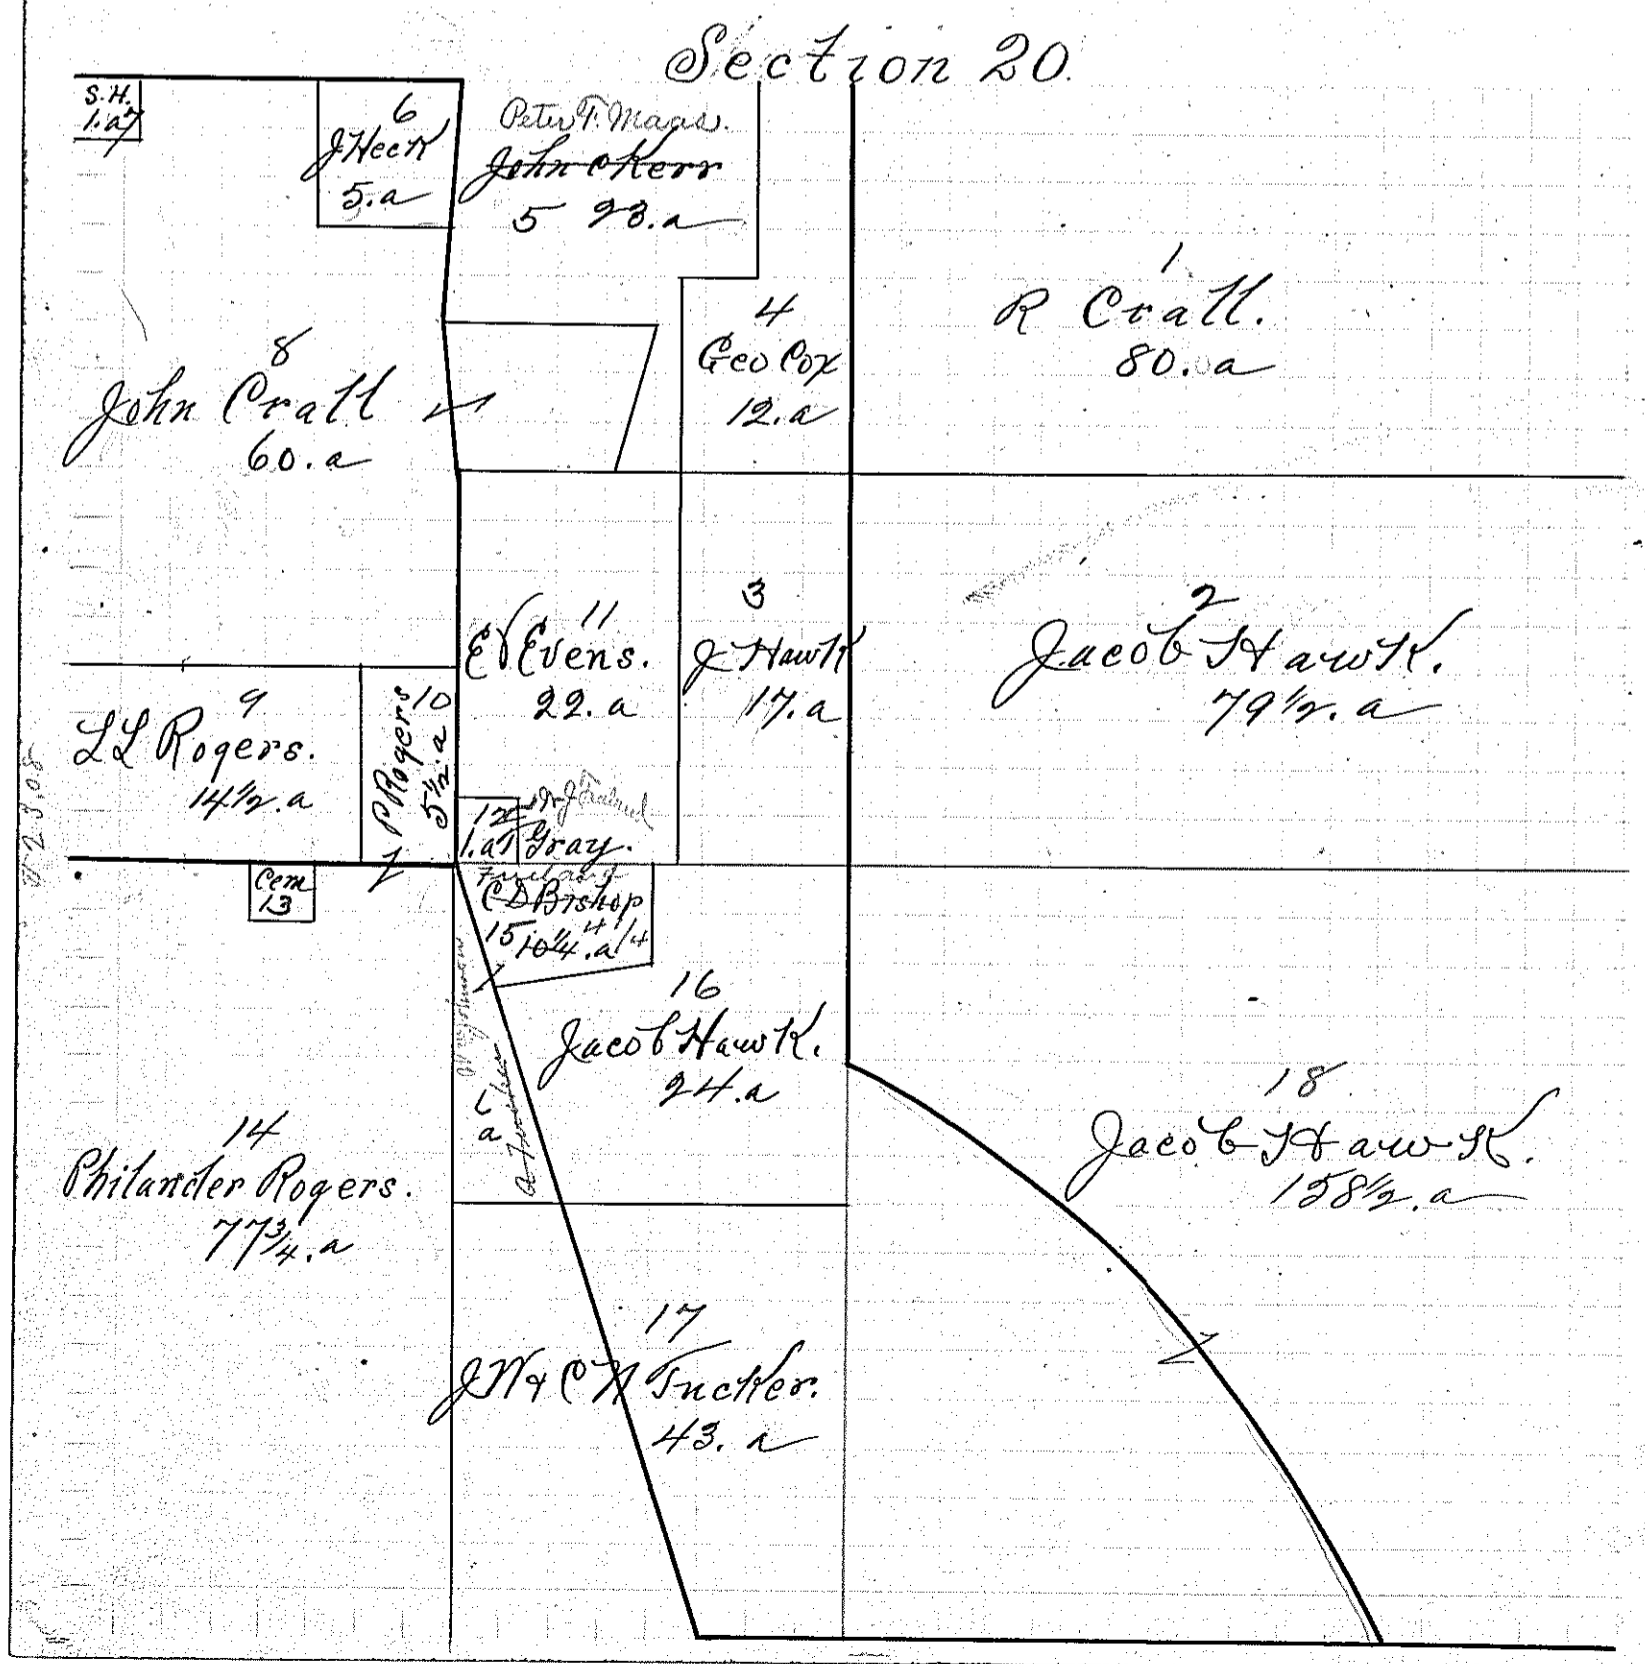 Section 20.
S.H.
1.a
7
6
J Heck
5.a
Peter T. Maas.
John C Kerr
5 23.a
1
R Crall.
80.a
4
Geo Cox
12.a
8
John Crall
60.a
11
E V Evens.
22.a
3
J Hawk
17.a
2
Jacob Hawk.
79 1/2.a
9
L L Rogers.
14 1/2.a
10
P Rogers
5 1/2.a
12
1.a
Gray.
Cem
13
C D Bishop
15 10 1/4.a
16
Jacob Hawk.
24.a
14
Philander Rogers.
77 3/4.a
18
Jacob Hawk.
158 1/2.a
17
J W & C N Tucker.
43.a